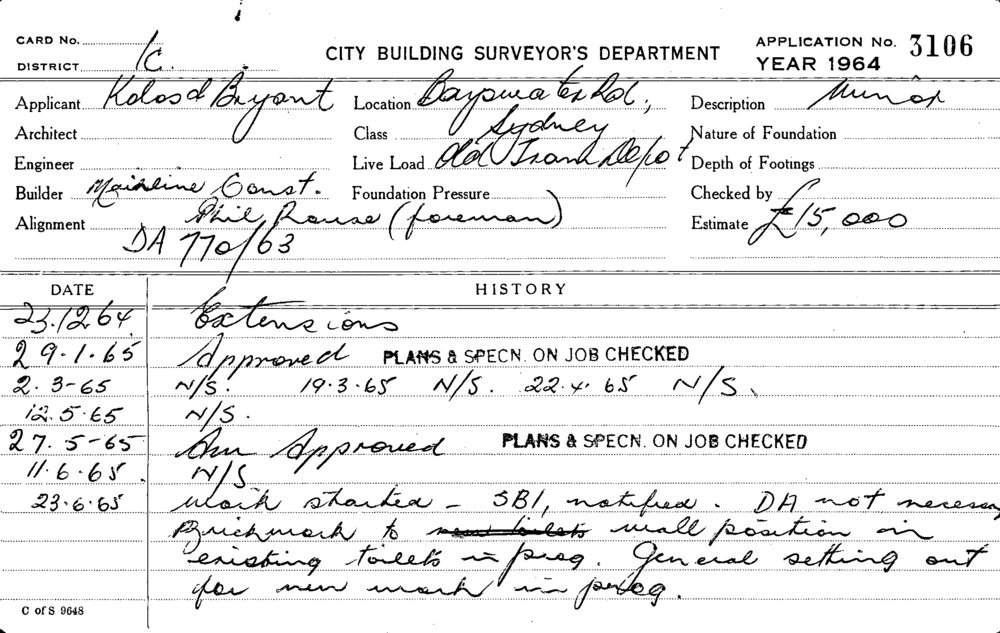 CARD No.
DISTRICT 1C.
CITY BUILDING SURVEYOR'S DEPARTMENT
APPLICATION No. 3106
YEAR 1964
Applicant Kolos & Bryant Location Bayswater Rd., Description Minor
Architect Class Sydney Nature of Foundation
Engineer Live Load Old Tram Depot Depth of Footings
Builder Mainline Const. Foundation Pressure Checked by
Alignment Phil Rouse (foreman) Estimate £15,000
DA 770/63
DATE HISTORY
23.12 64 Extensions
29.1.65 Approved PLANS & SPECN. ON JOB CHECKED
2.3-65 N/S. 19.3.65 N/S. 22.4.65 N/S.
12.5.65 N/S.
27.5-65 Am Approved PLANS & SPECN. ON JOB CHECKED
11.6.65. N/S
23.6.65 work started - SBI, notified. DA not necessary
Brickwork to new toilets wall position in
existing toilets in prog. General setting out
for new work in prog.
C of S 9648